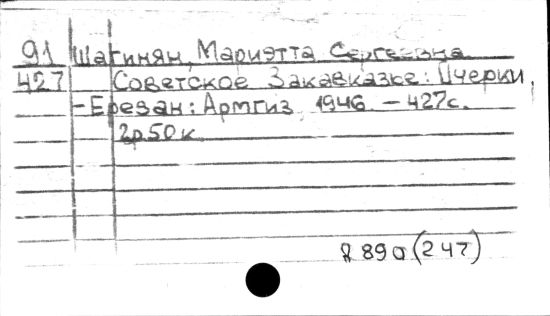 91 Шагинян, Мариэтта Сергеевна
427 Советское Закавказье: Очерки,
- Ереван: Армгиз, 1946 - 427с.
2р50к
890 (247)